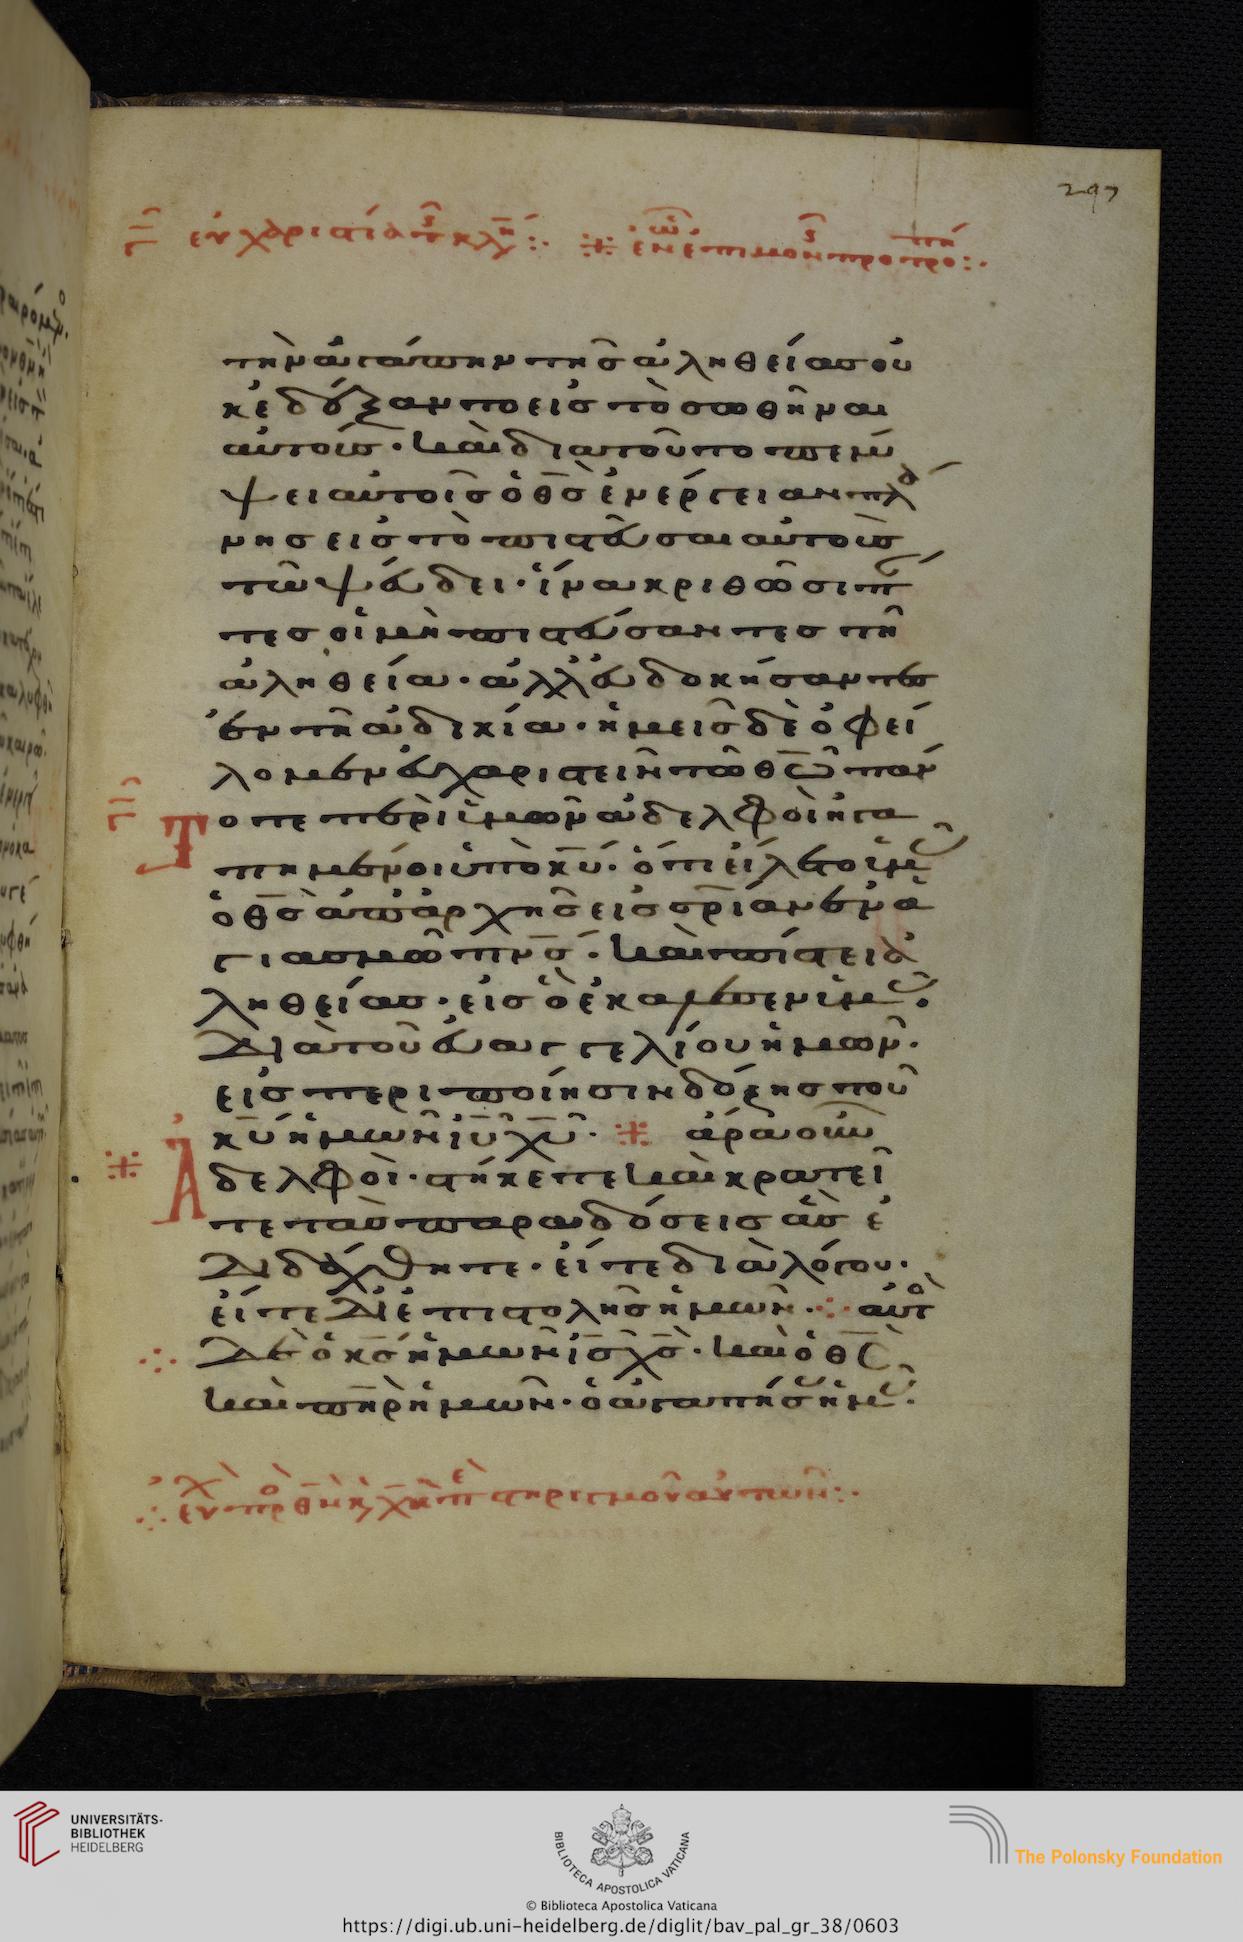 297
τὴν ἀγάπην τῆς ἀληθείας οὐ
κ ἐδέξαντο εἰς τὸ σωθῆναι
αὐτούς· καὶ διατοῦτο πέμ
ψει αὐτοῖς ὁ θς ἐνέργειαν πλά
νης εἰς τὸ πιστεῦσαι αὐτοὺς
τῶ ψεύδει· ἵνα κριθῶσι πάν
τες οἱ μὴ πιστεύσαντες τῆ
ἀληθεία· ἀλλ' εὐδοκήσαντες
ἐν τῆ ἀδικία· ἡμεῖς δὲ ὀφεί
λομεν εὐχαριστεῖν τῶ θῶ πάν
Τοτε περὶ ὑμῶν ἀδελφοὶ ἠγα
πημένοι ὑπὸ κυ· ὅτι εἵλετο ὑμᾶς
ὁ θς ἀπαρχῆς εἰς σρίαν ἐν ἁ
γιασμῶ πνς· καὶ πίστει ἀ
ληθείας· εἰς ὃ ἐκάλεσεν ὑμᾶς·
διὰ τοῦ εὐαγγελίου ἡμῶν·
εἰς περιποίησιν δόξης τοῦ
κυ ἡμῶν ιυ χυ· ※ ἄρα οὖν
Ἀδελφοὶ· στήκετε καὶ κρατεῖ
τε τὰς παραδόσεις ἃς ἐ
διδάχθητε· εἴτε διὰ λόγου·
εἴτε δι' ἐπιστολῆς ἡμῶν· αὐτὸς
δὲ ὁ κς ἡμῶν ις χς· καὶ ὁ θς
καὶ πηρ ἡμῶν· ὁ ἀγαπήσας ἡμᾶς·
UNIVERSITÄTS-
BIBLIOTHEK
HEIDELBERG
BIBLIOTECA APOSTOLICA VATICANA
The Polonsky Foundation
© Biblioteca Apostolica Vaticana
https://digi.ub.uni-heidelberg.de/diglit/bav_pal_gr_38/0603